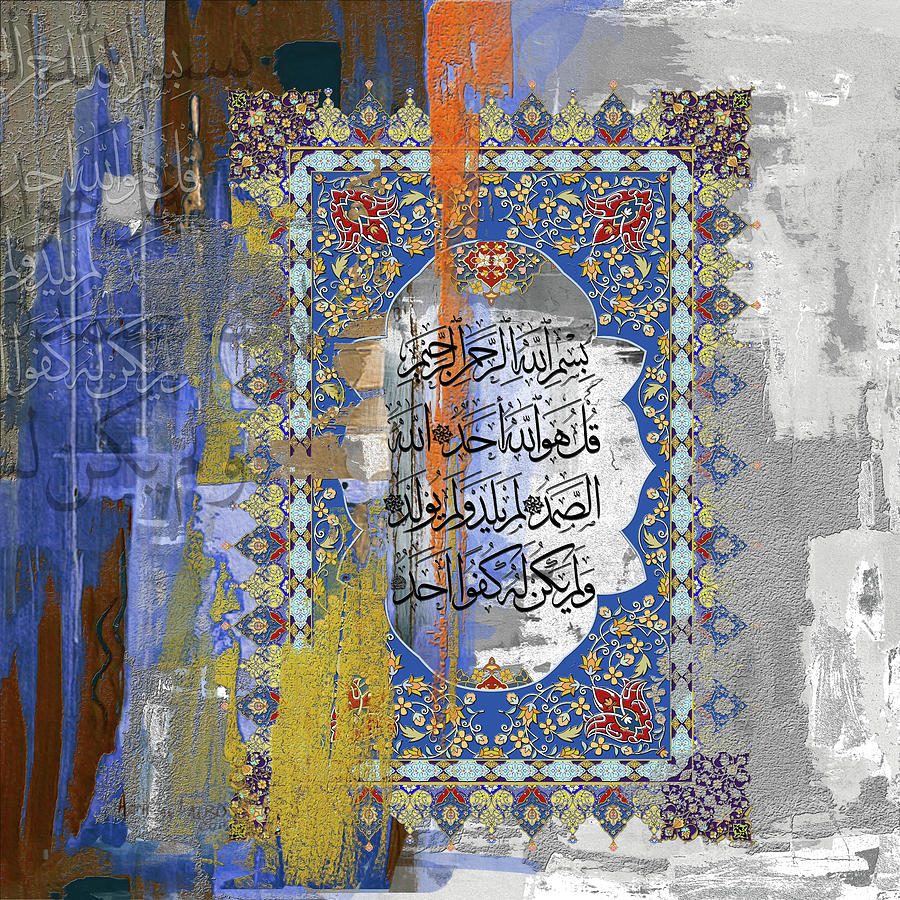 بِسْمِ اللهِ الرَّحْمٰنِ الرَّحِيْمِ
قُلْ هُوَ اللهُ أَحَدٌ اللهُ
الصَّمَدُ لَمْ يَلِدْ وَلَمْ يُولَدْ
وَلَمْ يَكُنْ لَهُ كُفُوًا اَحَدٌ
بسم الله الرحمن ال
قل هو الله احد
لم يلد ولم
يكن له كفوا
و لم يكن ل